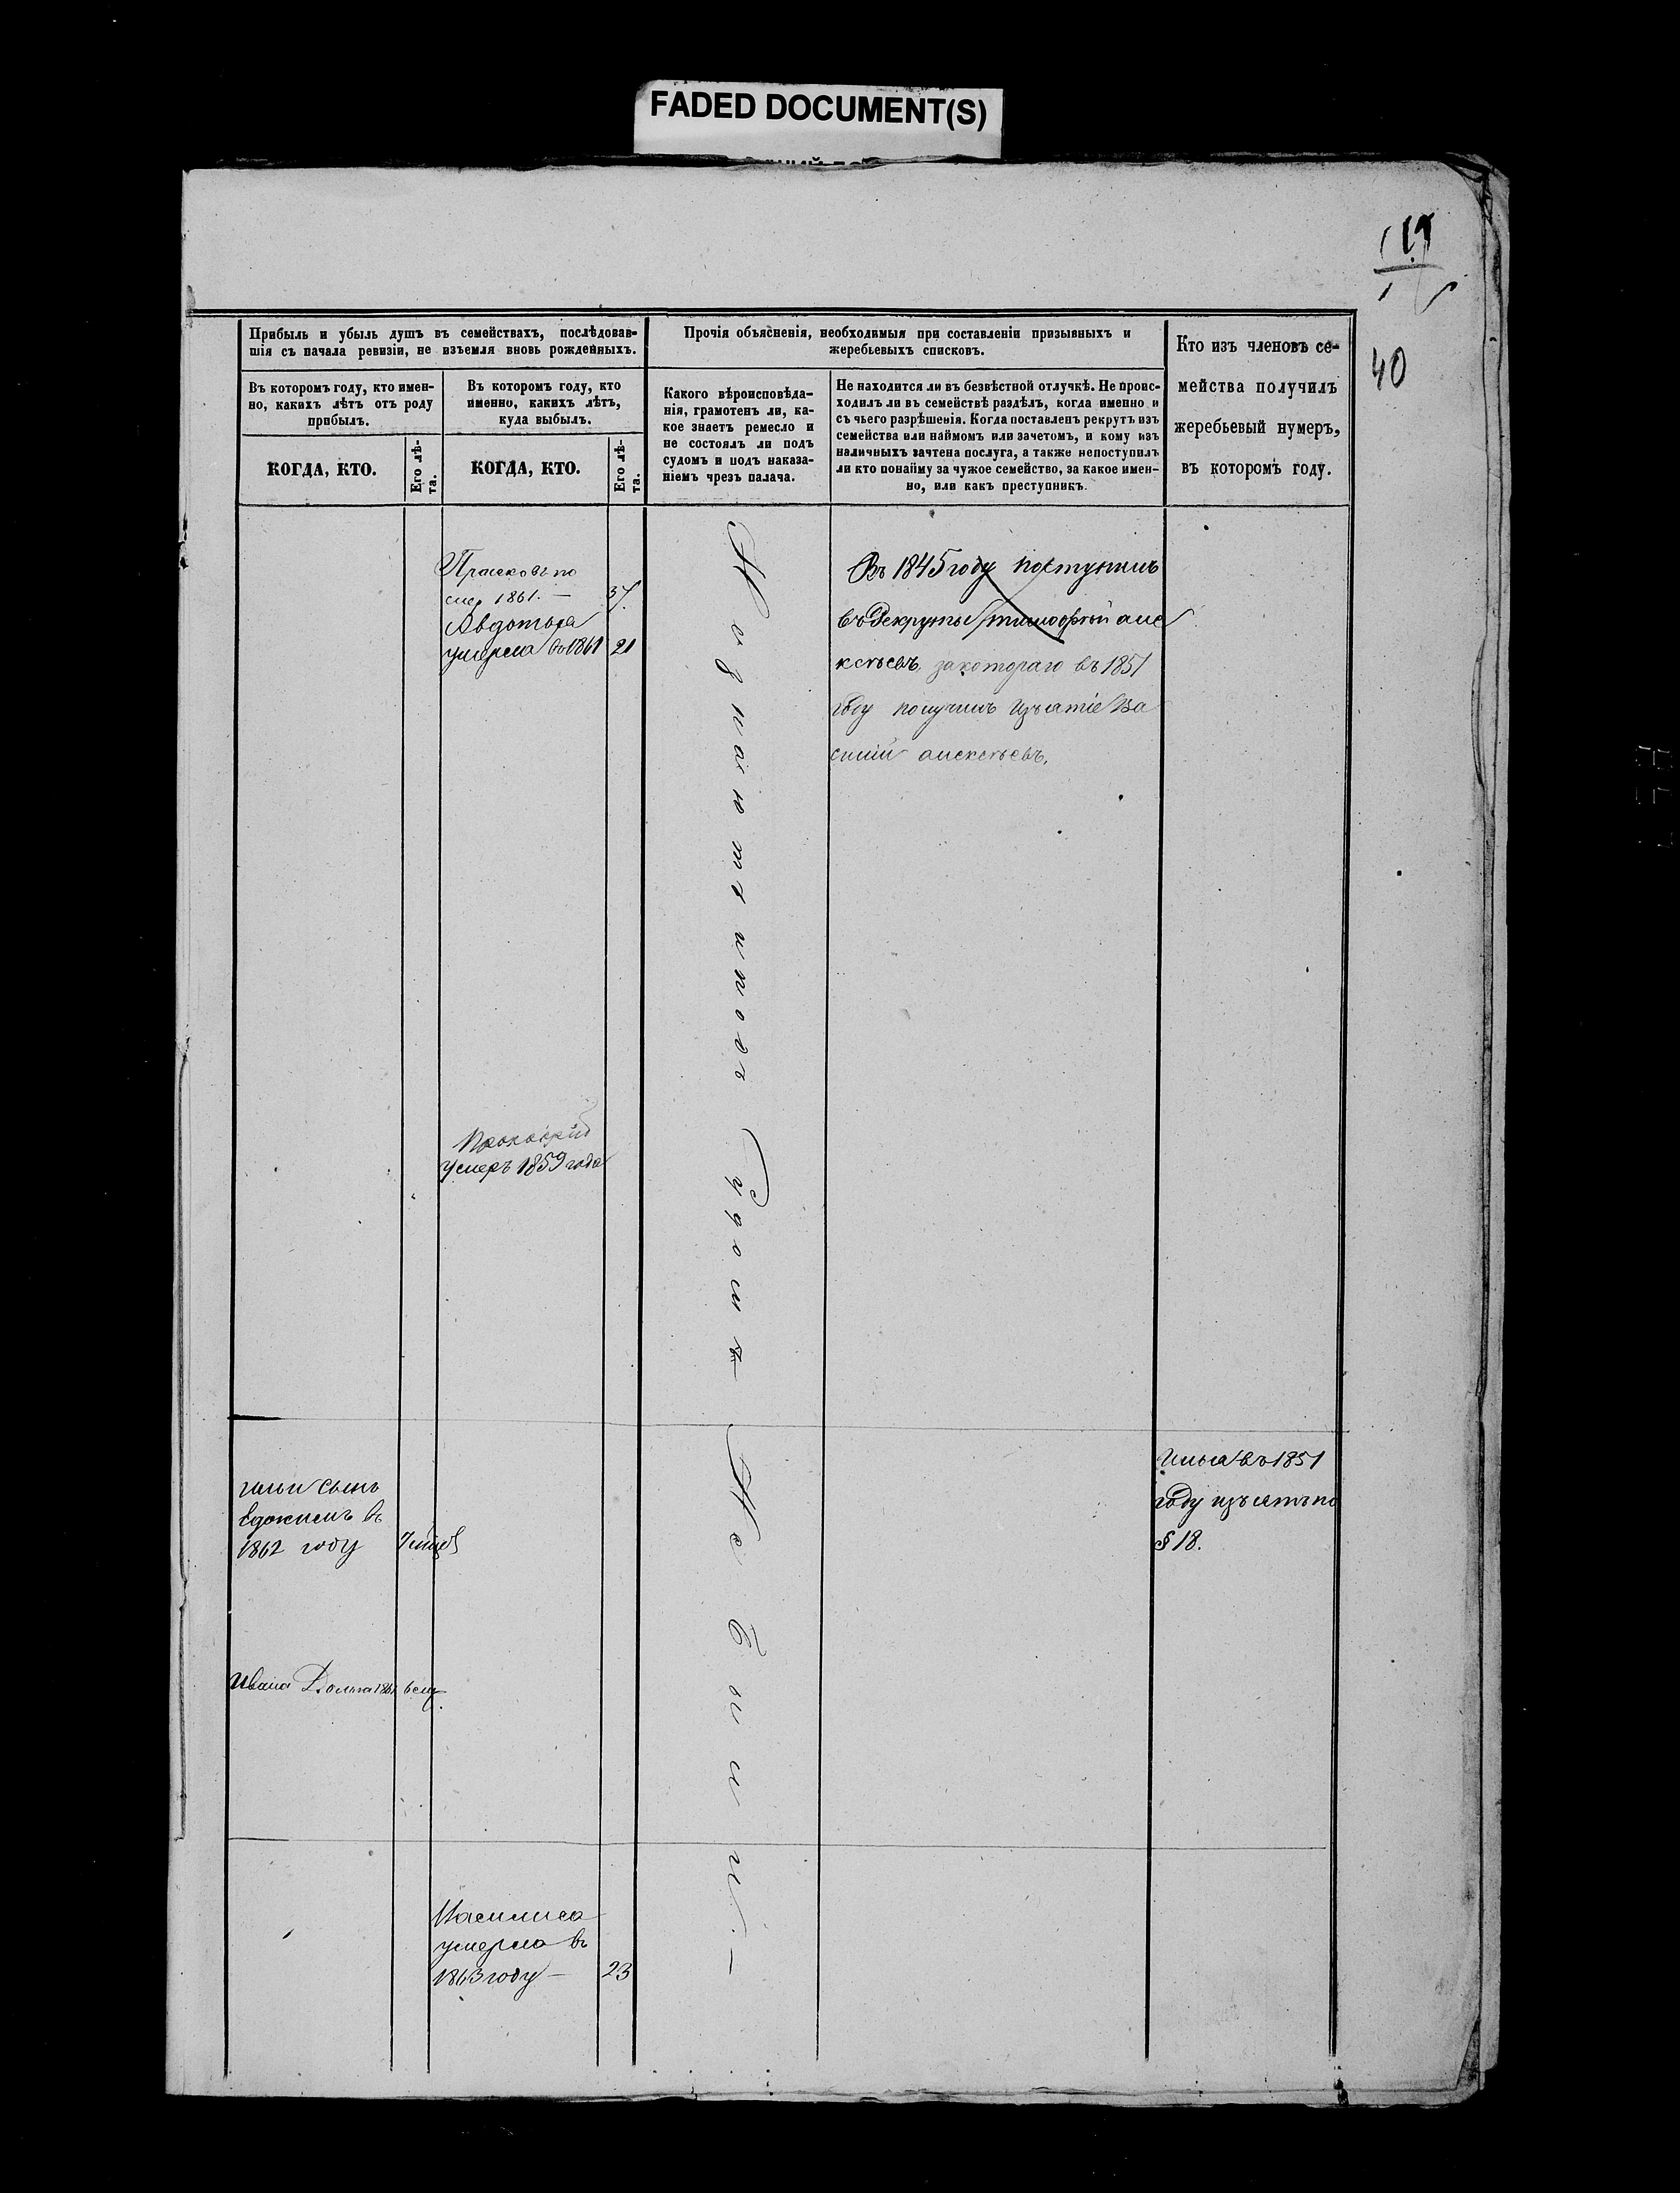 FADED DOCUMENT(S)
19
40
Прибыль и убыль душъ въ семействахъ, послѣдовав-
шія съ начала ревизіи, не изъемля вновь рожденныхъ.
Въ которомъ году, кто имен-
но, какихъ лѣтъ отъ роду
прибылъ.
Въ которомъ году, кто
именно, какихъ лѣтъ,
куда выбылъ.
КОГДА, КТО.
Его лѣ-
та.
КОГДА, КТО.
Его лѣ-
та.
Прочія объясненія, необходимыя при составленіи призывныхъ и
жеребьевыхъ списковъ.
Какого вѣроисповѣда-
нія, грамотенъ ли, ка-
кое знаетъ ремесло и
не состоялъ ли подъ
судомъ и подъ наказа-
ніемъ чрезъ палача.
Не находится ли въ безвѣстной отлучкѣ. Не проис-
ходилъ ли въ семействѣ раздѣлъ, когда именно и
съ чьего разрѣшенія. Когда поставленъ рекрутъ изъ
семейства или наймомъ или зачетомъ, и кому изъ
наличныхъ зачтена послуга, а также непоступилъ
ли кто понайму за чужое семейство, за какое имен-
но, или какъ преступникъ.
Кто изъ членовъ се-
мейства получилъ
жеребьевый нумеръ,
въ которомъ году.
Прасковь по
мер 1861. — 37.
Авдотья
умерла въ 1861 21
Въ 1845 году поступилъ
въ Рекруты тимофѣй але
ксѣевъ, за котораго въ 1851
году получилъ Изъятіе Ва
силій алексѣевъ.
Прокофій
умеръ 1859 года
Подъ Судомъ Не Были. —
Ильи сынъ
Евдокимъ въ
1862 году
Илья въ 1851
году изъятъ по
§ 18.
Ивана 1861 6 мц.
Василиса
умерла въ
1863 году — 23